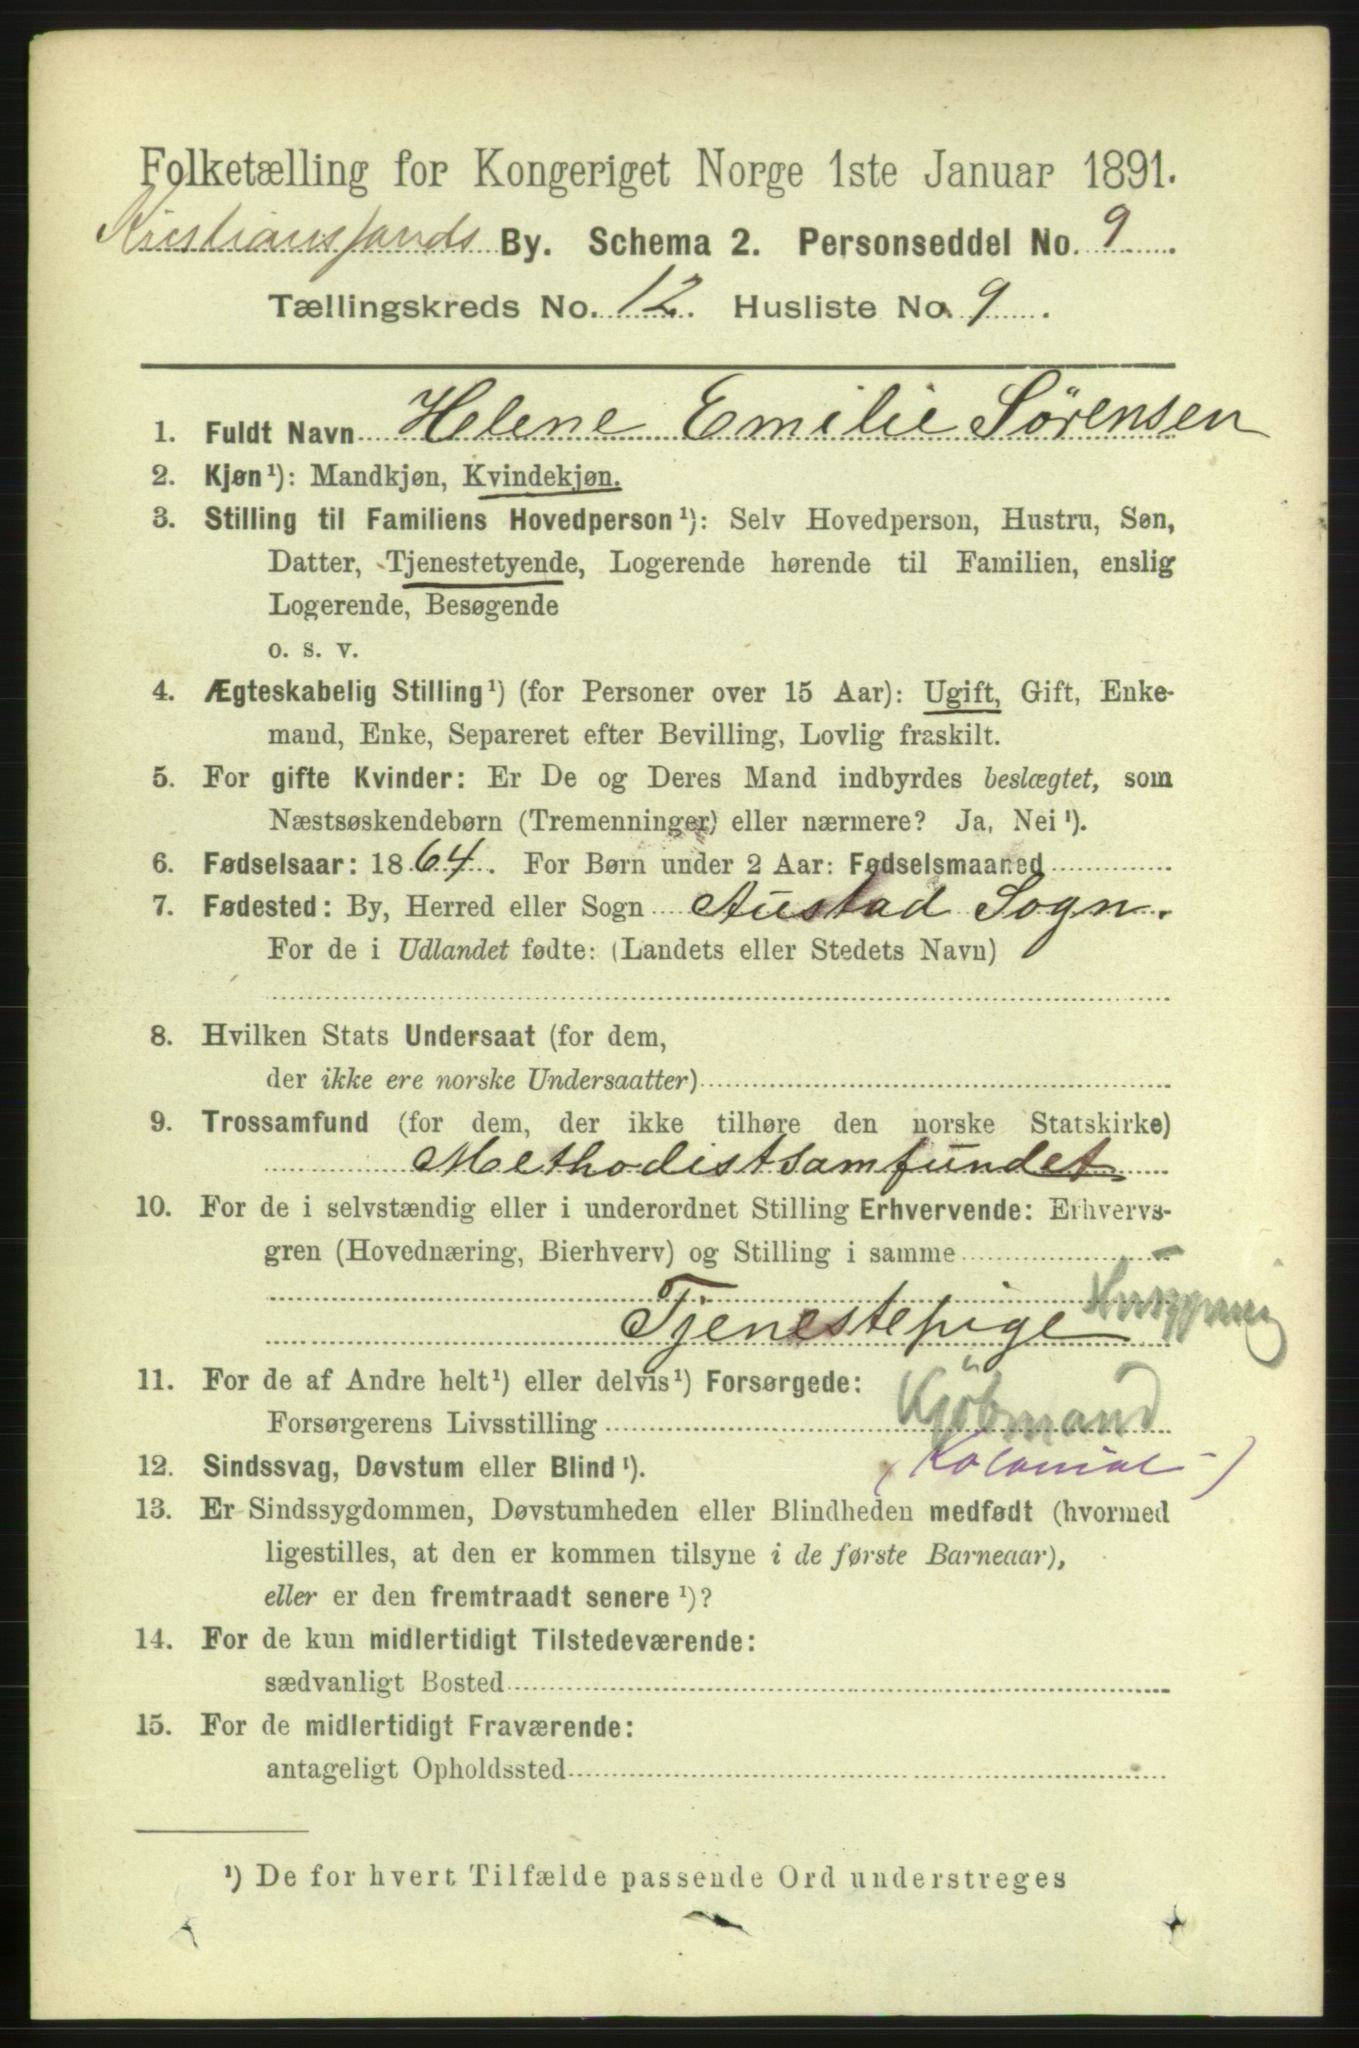 Folketælling for Kongeriget Norge 1ste Januar 1891.
Kristianssands By. Schema 2. Personseddel No. 9.
Tællingskreds No. 12. Husliste No. 9.
1. Fuldt Navn Helene Emilie Sörensen
2. Kjøn¹): Mandkjøn, Kvindekjøn.
3. Stilling til Familiens Hovedperson¹): Selv Hovedperson, Hustru, Søn,
Datter, Tjenestetyende, Logerende hørende til Familien, enslig
Logerende, Besøgende
o. s. v.
4. Ægteskabelig Stilling¹) (for Personer over 15 Aar): Ugift, Gift, Enke-
mand, Enke, Separeret efter Bevilling, Lovlig fraskilt.
5. For gifte Kvinder: Er De og Deres Mand indbyrdes beslægtet, som
Næstsøskendebørn (Tremenninger) eller nærmere? Ja, Nei¹).
6. Fødselsaar: 1864. For Børn under 2 Aar: Fødselsmaaned
7. Fødested: By, Herred eller Sogn Austad Sogn.
For de i Udlandet fødte: (Landets eller Stedets Navn)
8. Hvilken Stats Undersaat (for dem,
der ikke ere norske Undersaatter)
9. Trossamfund (for dem, der ikke tilhøre den norske Statskirke)
Methodistsamfundet
10. For de i selvstændig eller i underordnet Stilling Erhvervende: Erhvervs-
gren (Hovednæring, Bierhverv) og Stilling i samme
Tjenestepige
11. For de af Andre helt¹) eller delvis¹) Forsørgede:
Forsørgerens Livsstilling Kjöbmand
12. Sindssvag, Døvstum eller Blind¹). (Kolonial-)
13. Er Sindssygdommen, Døvstumheden eller Blindheden medfødt (hvormed
ligestilles, at den er kommen tilsyne i de første Barneaar),
eller er den fremtraadt senere¹)?
14. For de kun midlertidigt Tilstedeværende:
sædvanligt Bosted
15. For de midlertidigt Fraværende:
antageligt Opholdssted
¹) De for hvert Tilfælde passende Ord understreges